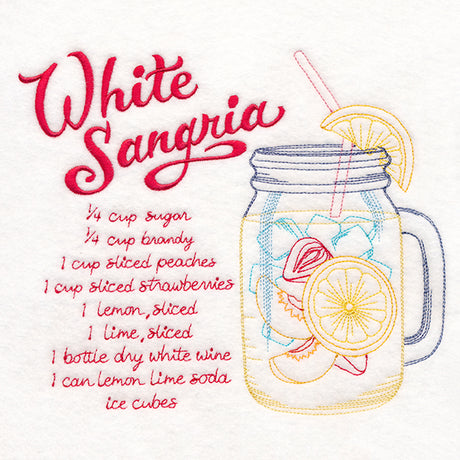 White
Sangria
1/4 cup sugar
1/4 cup brandy
1 cup sliced peaches
1 cup sliced strawberries
1 lemon, sliced
1 lime, sliced
1 bottle dry white wine
1 can lemon lime soda
ice cubes